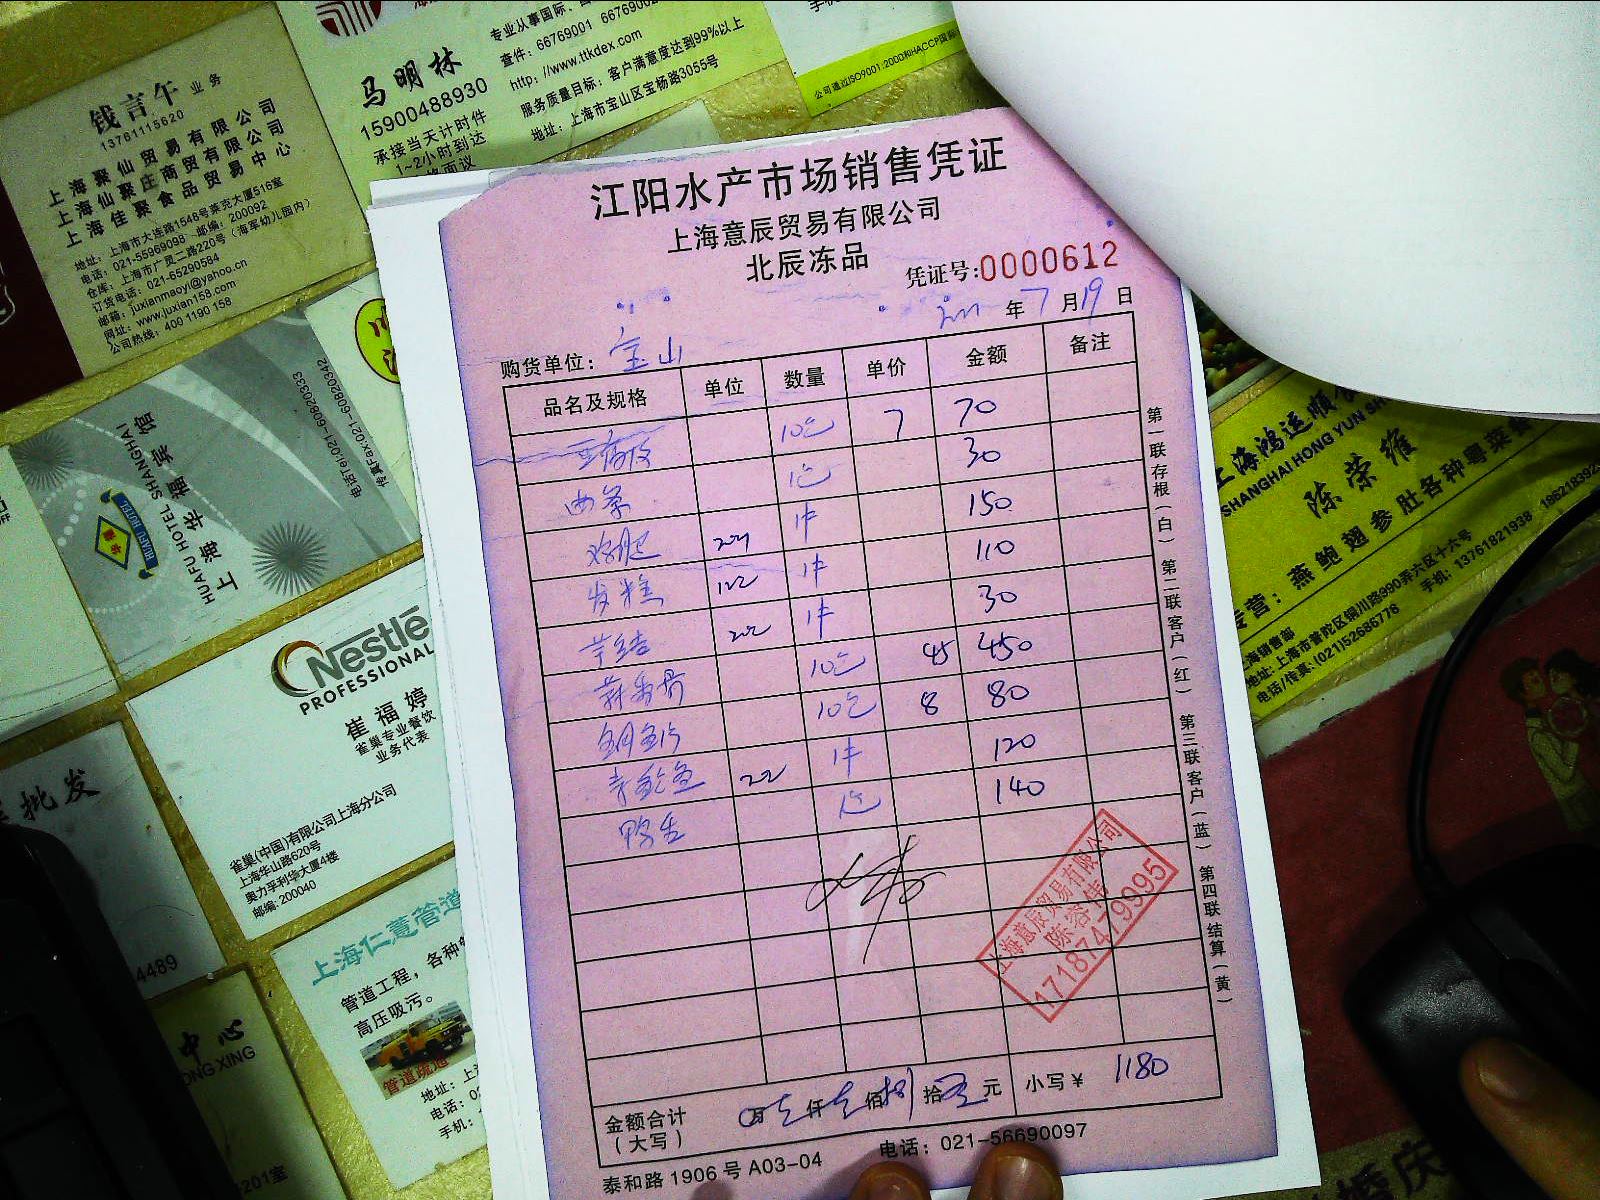 钱言午 业务
13761115620
上海聚仙贸易有限公司
上海仙聚庄商贸有限公司
上海佳聚食品贸易中心
地址：上海市大连路1546号莱克大厦516室
电话：021-55969098 邮编：200092
仓库：上海市广灵二路220号（海军幼儿园内）
订货电话：021-65290584
邮箱：juxianmaoyi@yahoo.cn
网址：www.juxian158.com
公司热线：400 1190 158
马明林
15900488930
承接当天计时件
1~2小时到达
专业从事国际、
查件：66769001 6676900
http://www.ttkdex.com
服务质量目标：客户满意度达到99%以上
地址：上海市宝山区宝杨路3055号
公司通过ISO9001:2000和HACCP国际
上海华福宾馆
HUAFU HOTEL SHANGHAI
电话Tel:021-60820333
传真Fax:021-60820342
Nestlé
PROFESSIONAL
崔福婷
雀巢专业餐饮
业务代表
雀巢(中国)有限公司上海分公司
上海华山路620号
奥力孚利华大厦4楼
邮编: 200040
批发
4489
中心
ONG XING
201室
上海仁慧管道
管道工程，各种
高压吸污。
管道疏通
地址：上
电话：02
手机：
江阳水产市场销售凭证
上海意辰贸易有限公司
北辰冻品
凭证号:0000612
年7月19日
购货单位：宝山
品名及规格 单位 数量 单价 金额 备注
10包 7 70
1包 30
1件 150
发糕 1件 110
1件 30
10包 45 450
10包 8 80
1件 120
1包 140
上海意辰贸易有限公司
陈容伟
17187479995
金额合计（大写） 万 仟 佰捌拾 元 小写¥ 1180
泰和路1906号A03-04 电话：021-56690097
第一联存根（白） 第二联客户（红） 第三联客户（蓝） 第四联结算（黄）
上海鸿运顺
SHANGHAI HONG YUN SH
陈荣雄
专营：燕鲍翅参肚各种粤菜
上海销售部
地址:上海市普陀区铜川路990弄六区十六号
电话/传真:(021)52686778 手机：13761821938 186218392
婚庆